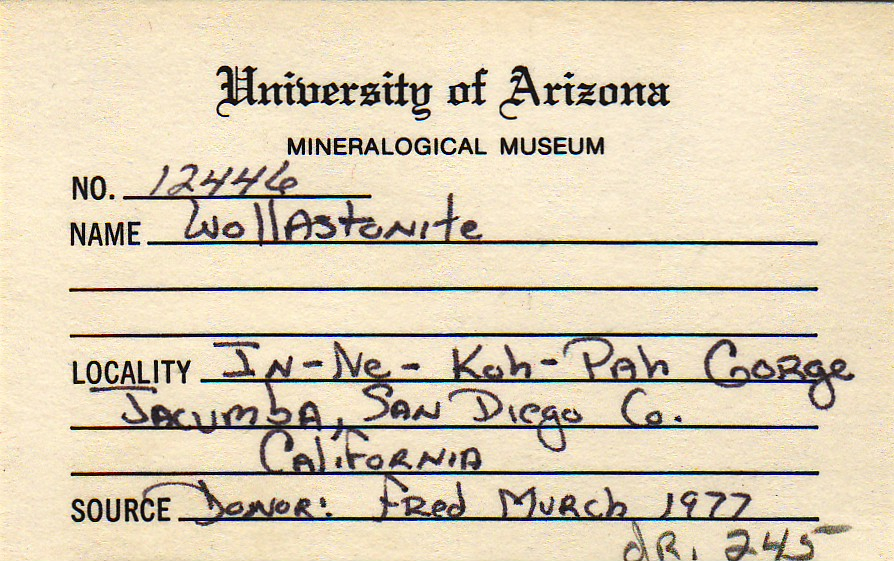 University of Arizona
MINERALOGICAL MUSEUM
NO. 12446
NAME Wollastonite
LOCALITY In-Ne-Koh-Pah Gorge
Jacumba, San Diego Co.
California
SOURCE Donor: Fred Murch 1977
dr. 245